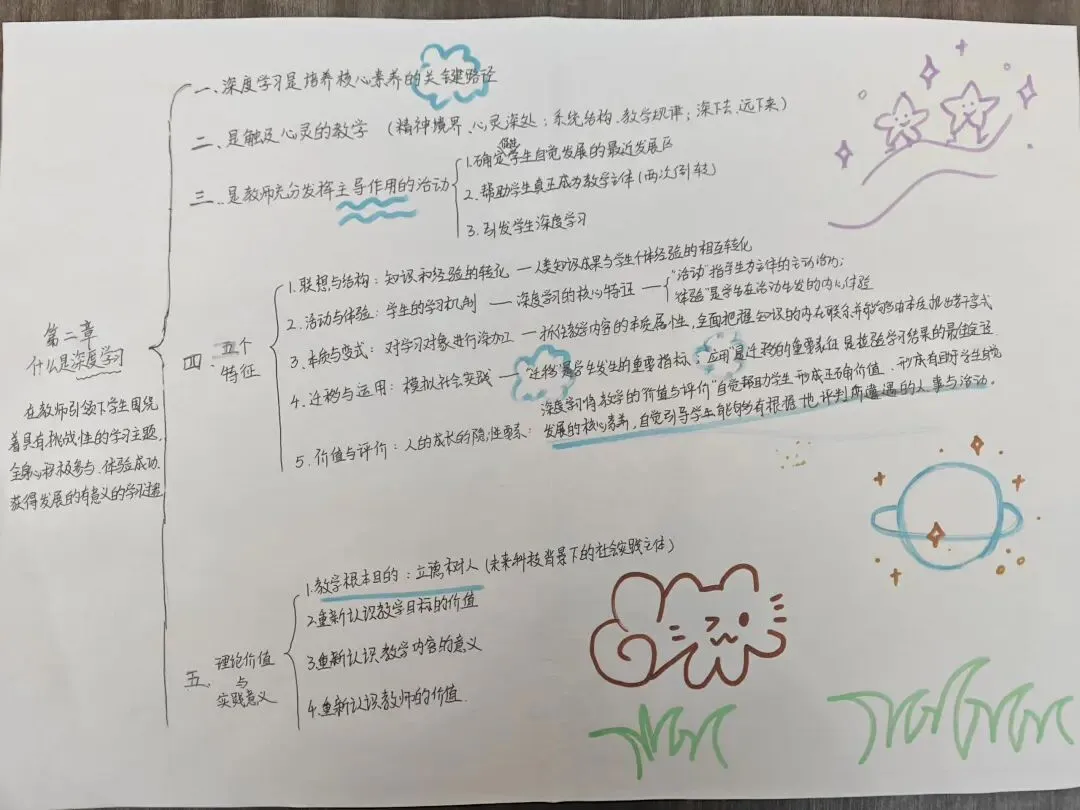 一、深度学习是培养核心素养的关键路径
二、是触及心灵的教学 (精神境界、心灵深处:系统结构、教学规律;深下去、远下来)
三、是教师充分发挥主导作用的活动
1.确定学生自觉发展的最近发展区
2.帮助学生真正成为教学主体(两次倒转)
3.引发学生深度学习
第二章
什么是深度学习
在教师引领下,学生围绕
着具有挑战性的学习主题,
全身心积极参与、体验成功、
获得发展的有意义的学习过程
四、五个
特征
1.联想与结构:知识和经验的转化—人类知识成果与学生个体经验的相互转化
2.活动与体验:学生的学习机制—深度学习的核心特征—
"活动"指学生为主体的主动活动;
"体验"是学生在活动生发的内心体验
3.本质与变式:对学习对象进行深加工—抓住教学内容的本质属性,全面把握知识的内在联系并能够由本质推出若干变式
4.迁移与运用:模拟社会实践—"迁移"是学生发生的重要指标;应用是迁移的重要表征是检验学习结果的最佳途径
5.价值与评价:人的成长的隐性要素:
深度学习将教学的"价值与评价"自觉帮助学生形成正确价值、形成有助于学生自觉
发展的核心素养,自觉引导学生能够有根据地评判所遭遇的人、事与活动。
五、理论价值
与
实践意义
1.教学根本目的:立德树人(未来科技背景下的社会实践主体)
2.重新认识教学目标的价值
3.重新认识教学内容的意义
4.重新认识教师的价值.